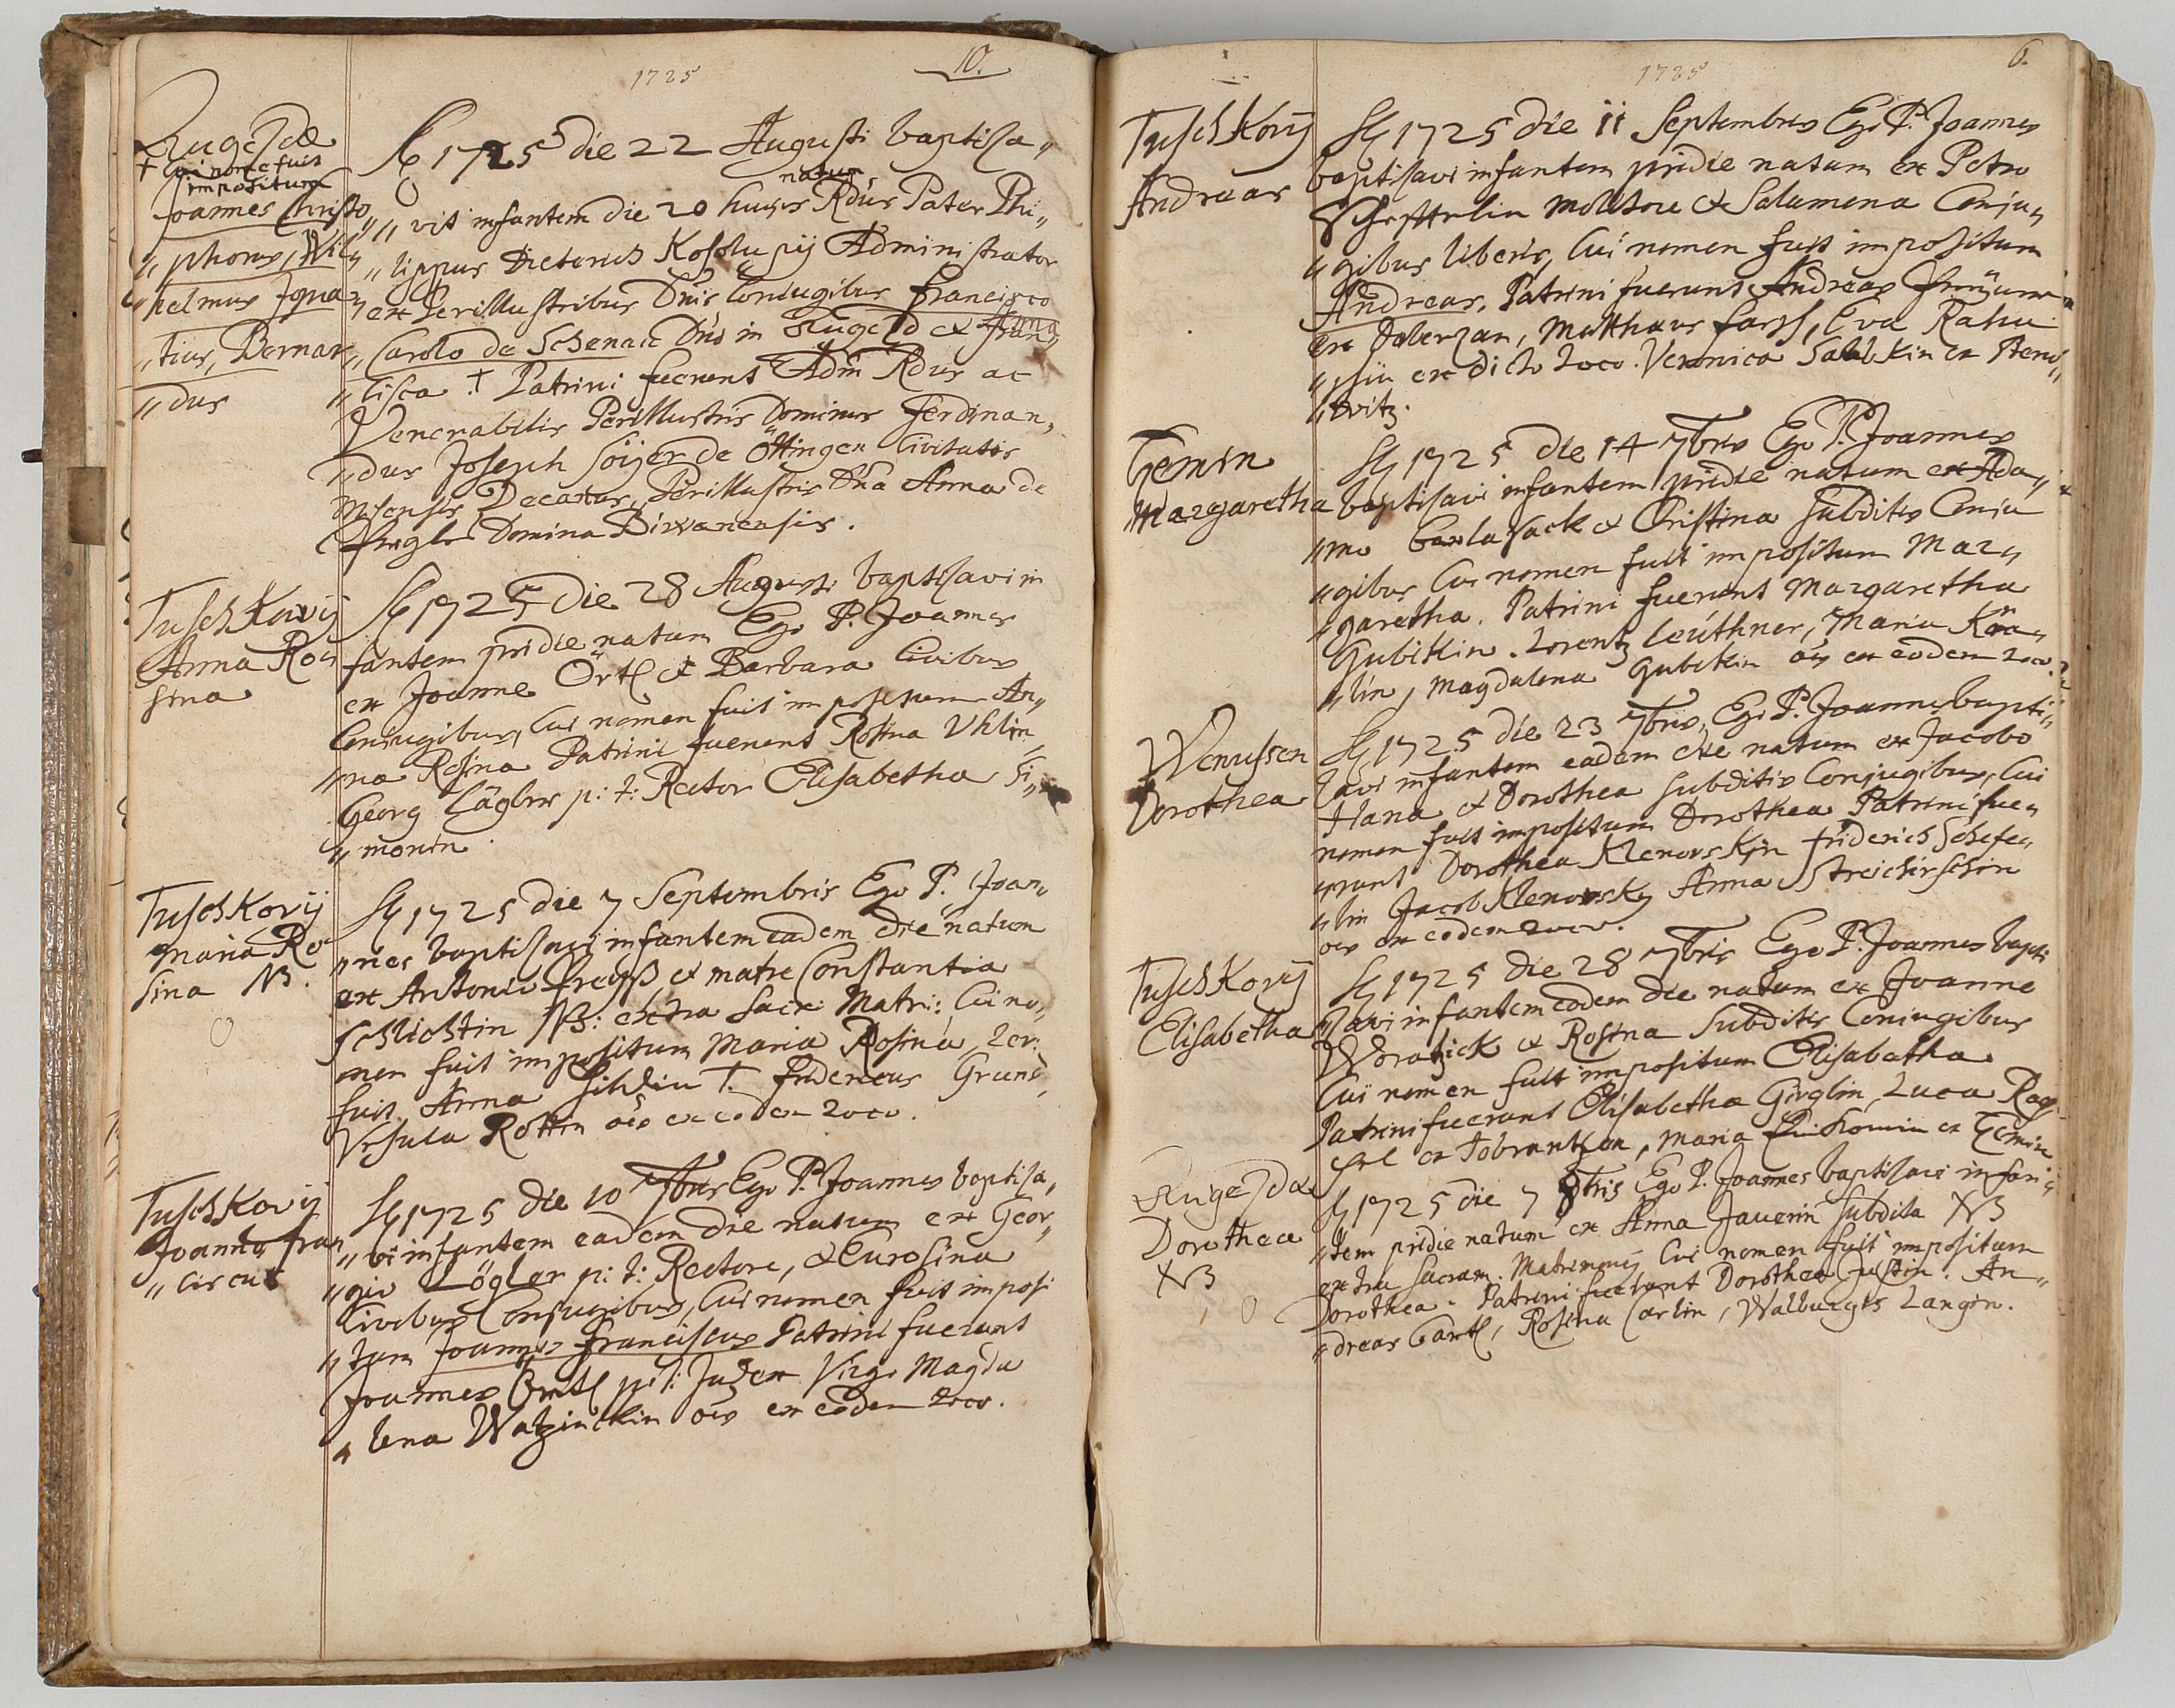 10.
1725
Rugezdæ
† Cui nomē fuit
impositum
Joannes Christo
„phorus, Wil„
„helmus Igna„
„tius, Bernar„
„dus
A 1725 die 22 Augusti baptiza„
natum
„vit infantem die 20 hujus Rdus Pater Phi„
„lippus Dictorius Kosolupij Administrator
ex Perillustribus Dnis Coniugibus Francisco
Carolo de Schenau Dno in Rugezd et Anna Fran„
„cisca † Patrini fuerunt Adm̄ Rdus ac
Venerabilis Perillustris Dominus Ferdinan„
„dus Joseph Söijer de Ottingen Civitatis
Misensis Decanus, Perillustris Dn̄a Anna de
Domina Dirwanensis.
Tuschkovij
Anna Ro„
sina
A 1725 Die 28 Augusti baptisavi in
fantem pridie natam Ego P. Joannes
ex Joanne Örtl et Barbara Civibus
Coniugibus, Cui nomen fuit impositum An„
„na Rosina Patrini fuerunt Rosina Uhlin,
Georg Lägler p: t: Rector Elisabetha Si„
„monin.
Tuschkovij
Maria Ro„
sina NB.
A 1725 die 7 Septembris Ego P. Joan„
„nes baptisavi infantem eadem die natum
ex Antonio Preyß et matre Constantia
Schlichtin NB: extra Sacr: Matri: Cui no„
men fuit impositum Maria Rosina, Lev:
fuit Anna T. Fridericus Grund,
Vrsula Rottin oēs ex eodem Loco.
Tuschkovij
Joannes Fran
„ciscus
A 1725 die 10 7bris Ego P. Joannes baptisa„
„vi infantem eadem die natum ex Geor„
„gio Lögler p: t: Rectore, et Eurosina
Civibus Conjugibus, Cui nomen fuit imposi
„tum Joannes Franciscus Patrini fuerunt
Joannes Örtl p: t: Judex Virgo Magda
„lena Watzinckin oēs ex eodem Loco.
6.
1725
Tuschkovij
Andreas
A 1725 die 11 Septembris Ego P. Joannes
baptisavi infantem pridie natum ex Petro
Molitore et Salomena Conju„
„gibus liberis, Cui nomen fuit impositum
Andreas, Patrini fuerunt Andreas
ex Doberzan, Matthaus, Eva
ex dicto Loco. Veronica ex
„witz.
Gemin
Margaretha
A 1725 die 14 7bris Ego P. Joannes
baptisavi infantem pridie natum ex Ada„
„mo et Cristina Subditis Conju
„gibus Cui nomen fuit impositum Mar„
„garetha. Patrini fuerunt Margaretha
Gubitkin. Lorentz Leüthner, Maria
„lin, Magdalena Gubitkin oēs ex eodem Loco.
Wenussen
Dorothea
A 1725 die 23 7bris, Ego P. Joannes bapti„
zavi infantem eadem die natum ex Jacobo
Hana et Dorothea Subditis Conjugibus, Cui
nomen fuit impositum Dorothea Patrini fue„
„runt Dorothea Klenovskjn Friderich Schefe„
„lin Jacob Klenovsky Anna Streichirschin
oēs ex eodem Loco.
Tuschkovij
Elisabetha
A 1725 die 28 7bris Ego P. Joannes bapti
zavi infantem eodem die natum ex Joanne
Woratzick et Rosina Subditis Coniugibus
Cui nomen fuit impositum Elisabetha
Patrini fuerunt Elisabetha Girglin, Luca
ex Dobrantzan, Maria ex Gemin
Rugezdæ
Dorothea
NB
A 1725 die 7 8bris Ego P. Joannes baptisavi infan„
„tem pridie natum ex Anna Javerin Subdita NB
extra Sacram. Matrimonij Cui nomen fuit impositum
Dorothea. Patrini fuerunt Dorothea. An„
„dreas Bartl, Rosina Carlin, Walburgis Langin.